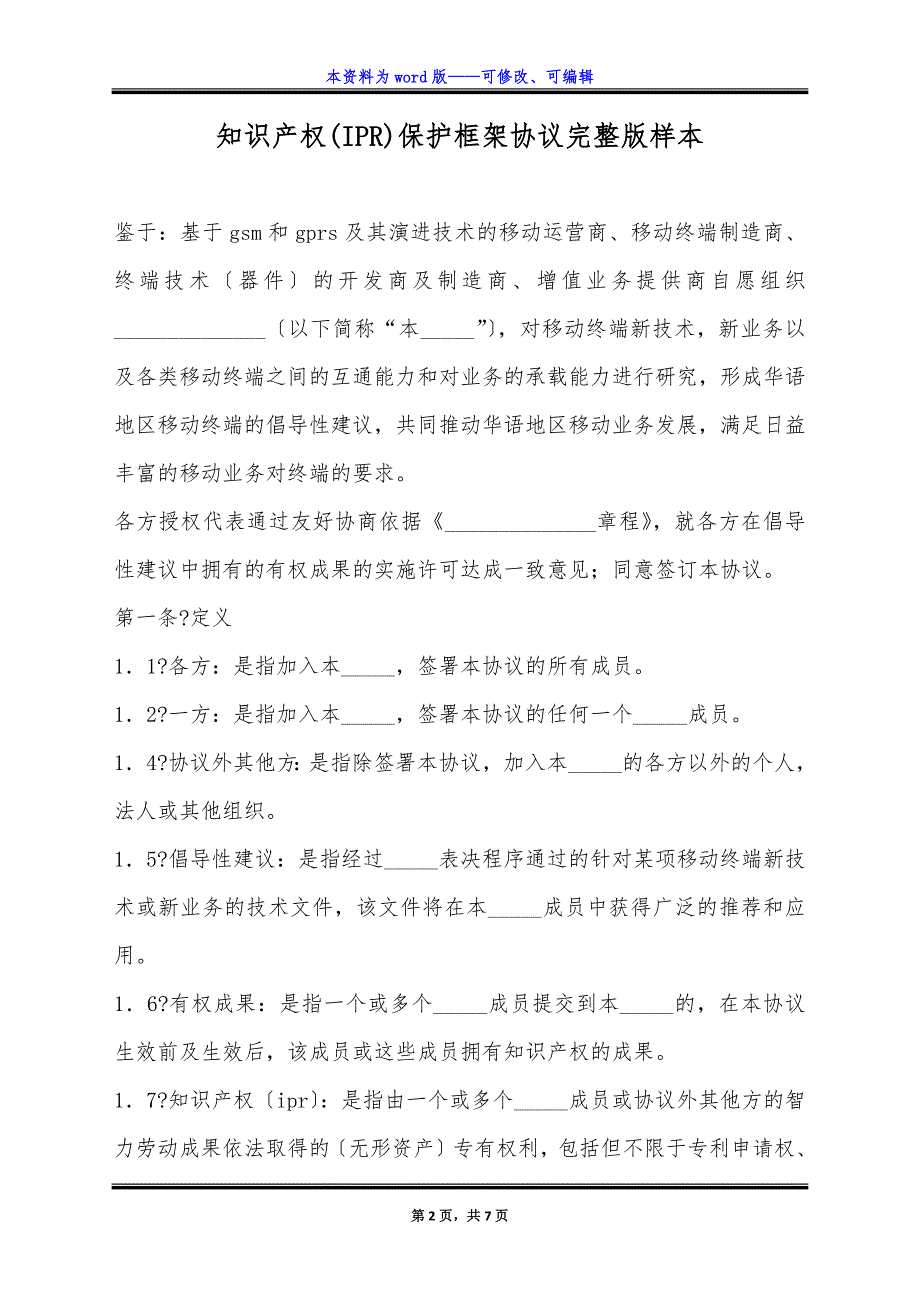 本资料为 word 版——可修改、可编辑
知识产权(IPR)保护框架协议完整版样本
鉴于：基于 gsm 和 gprs 及其演进技术的移动运营商、移动终端制造商、
终端技术〔器件〕的开发商及制造商、增值业务提供商自愿组织
______________〔以下简称“本_____”〕，对移动终端新技术，新业务以
及各类移动终端之间的互通能力和对业务的承载能力进行研究，形成华语
地区移动终端的倡导性建议，共同推动华语地区移动业务发展，满足日益
丰富的移动业务对终端的要求。
各方授权代表通过友好协商依据《______________章程》，就各方在倡导
性建议中拥有的有权成果的实施许可达成一致意见；同意签订本协议。
第一条?定义
1．1?各方：是指加入本_____，签署本协议的所有成员。
1．2?一方：是指加入本_____，签署本协议的任何一个_____成员。
1．4?协议外其他方：是指除签署本协议，加入本_____的各方以外的个人，
法人或其他组织。
1．5?倡导性建议：是指经过_____表决程序通过的针对某项移动终端新技
术或新业务的技术文件，该文件将在本_____成员中获得广泛的推荐和应
用。
1．6?有权成果：是指一个或多个_____成员提交到本_____的，在本协议
生效前及生效后，该成员或这些成员拥有知识产权的成果。
1．7?知识产权〔ipr〕：是指由一个或多个_____成员或协议外其他方的智
力劳动成果依法取得的〔无形资产〕专有权利，包括但不限于专利申请权、
第 2 页，共 7 页